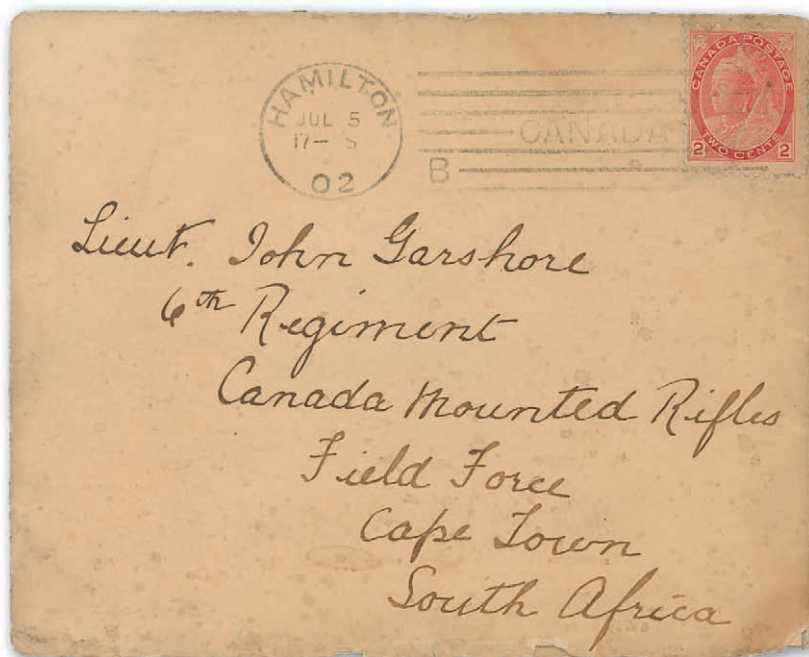 HAMILTON
JUL 5
17-
02
CANADA
B
CANADA POSTAGE
2 TWO CENTS 2
Lieut. John Garshore
6th Regiment
Canada Mounted Rifles
Field Force
Cape Town
South Africa